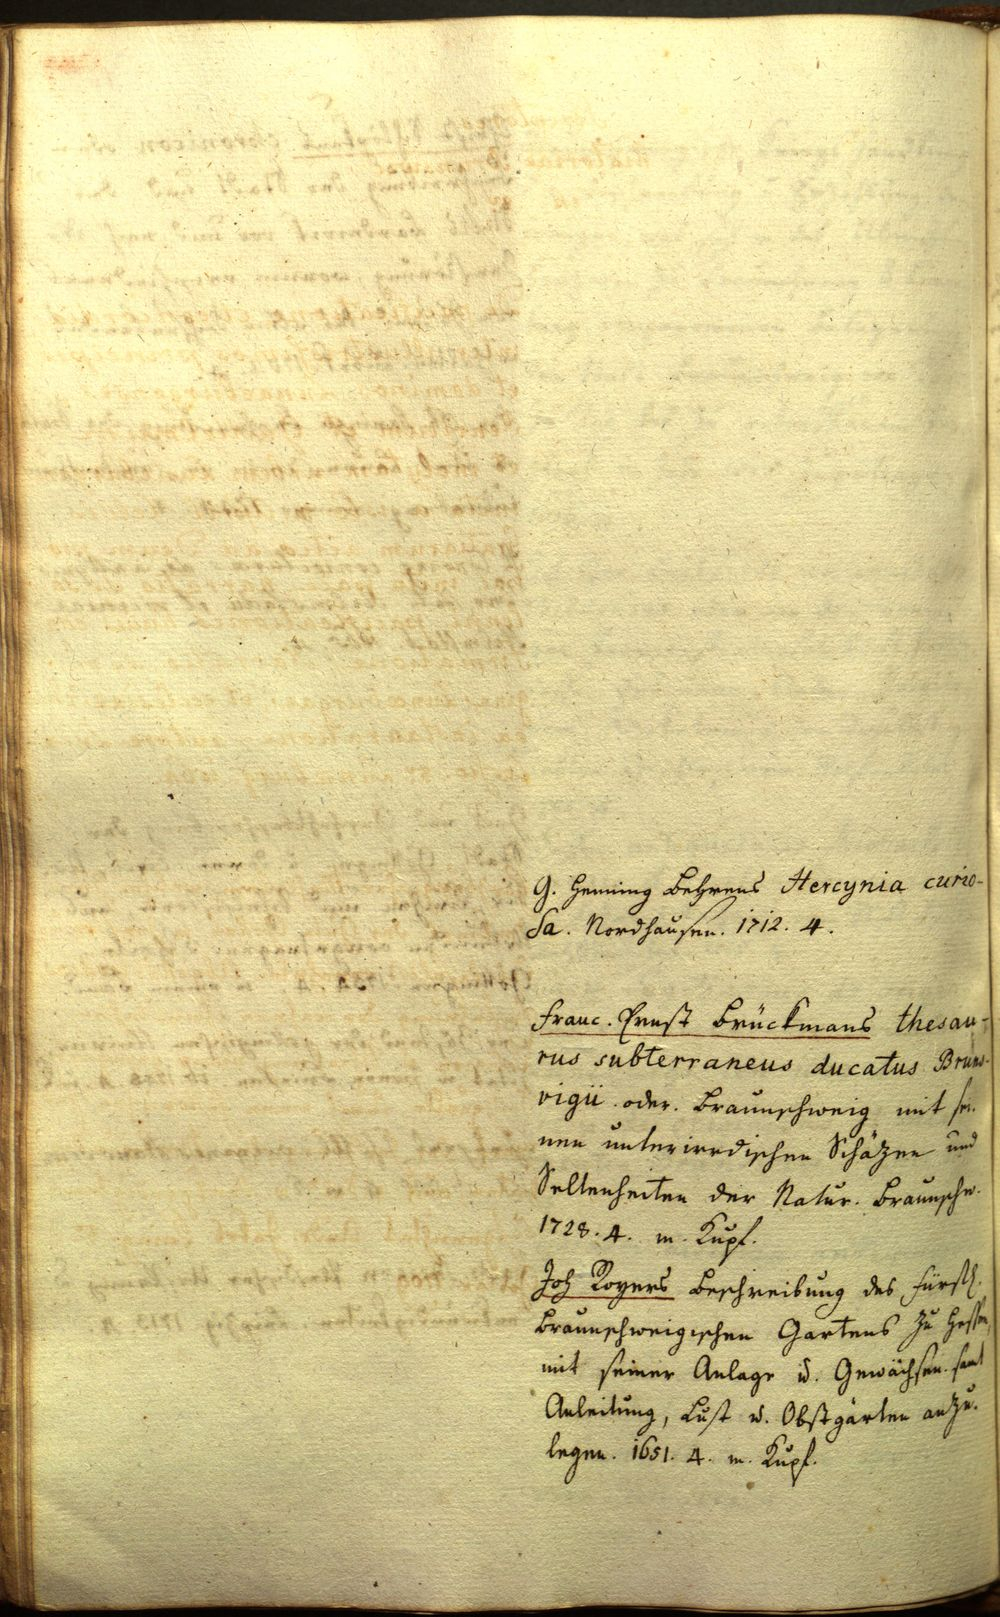 G. Henning Behrens Hercynia curio-
sa. Nordhausen. 1712. 4.
Franc. Ernst Brückmans thesau-
rus subterraneus ducatus Bruns-
vigii oder. Braunschweig mit sei-
nen unterirrdischen Schäzen und
Seltenheiten der Natur. Braunschw.
1728. 4. m. Kupf.
Joh Royers Beschreibung des Fürstl.
Braunschweigischen Gartens zu Hessen,
mit seiner Anlage u. Gewächsen. samt
Anleitung, Lust u. Obstgärten anzu-
legen. 1651. 4. m. Kupf.